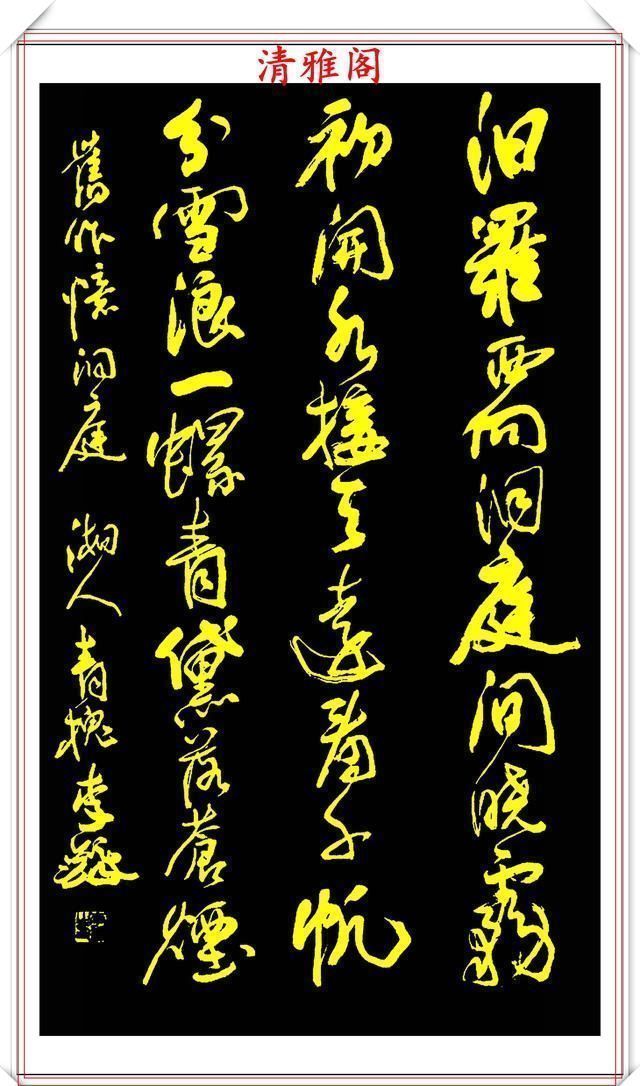 清雅阁
汨羅西向洞庭間曉霧
初開水接天遠看千帆
分雪浪一螺青黛落蒼煙
舊作憶洞庭 湘人青槐李鐸